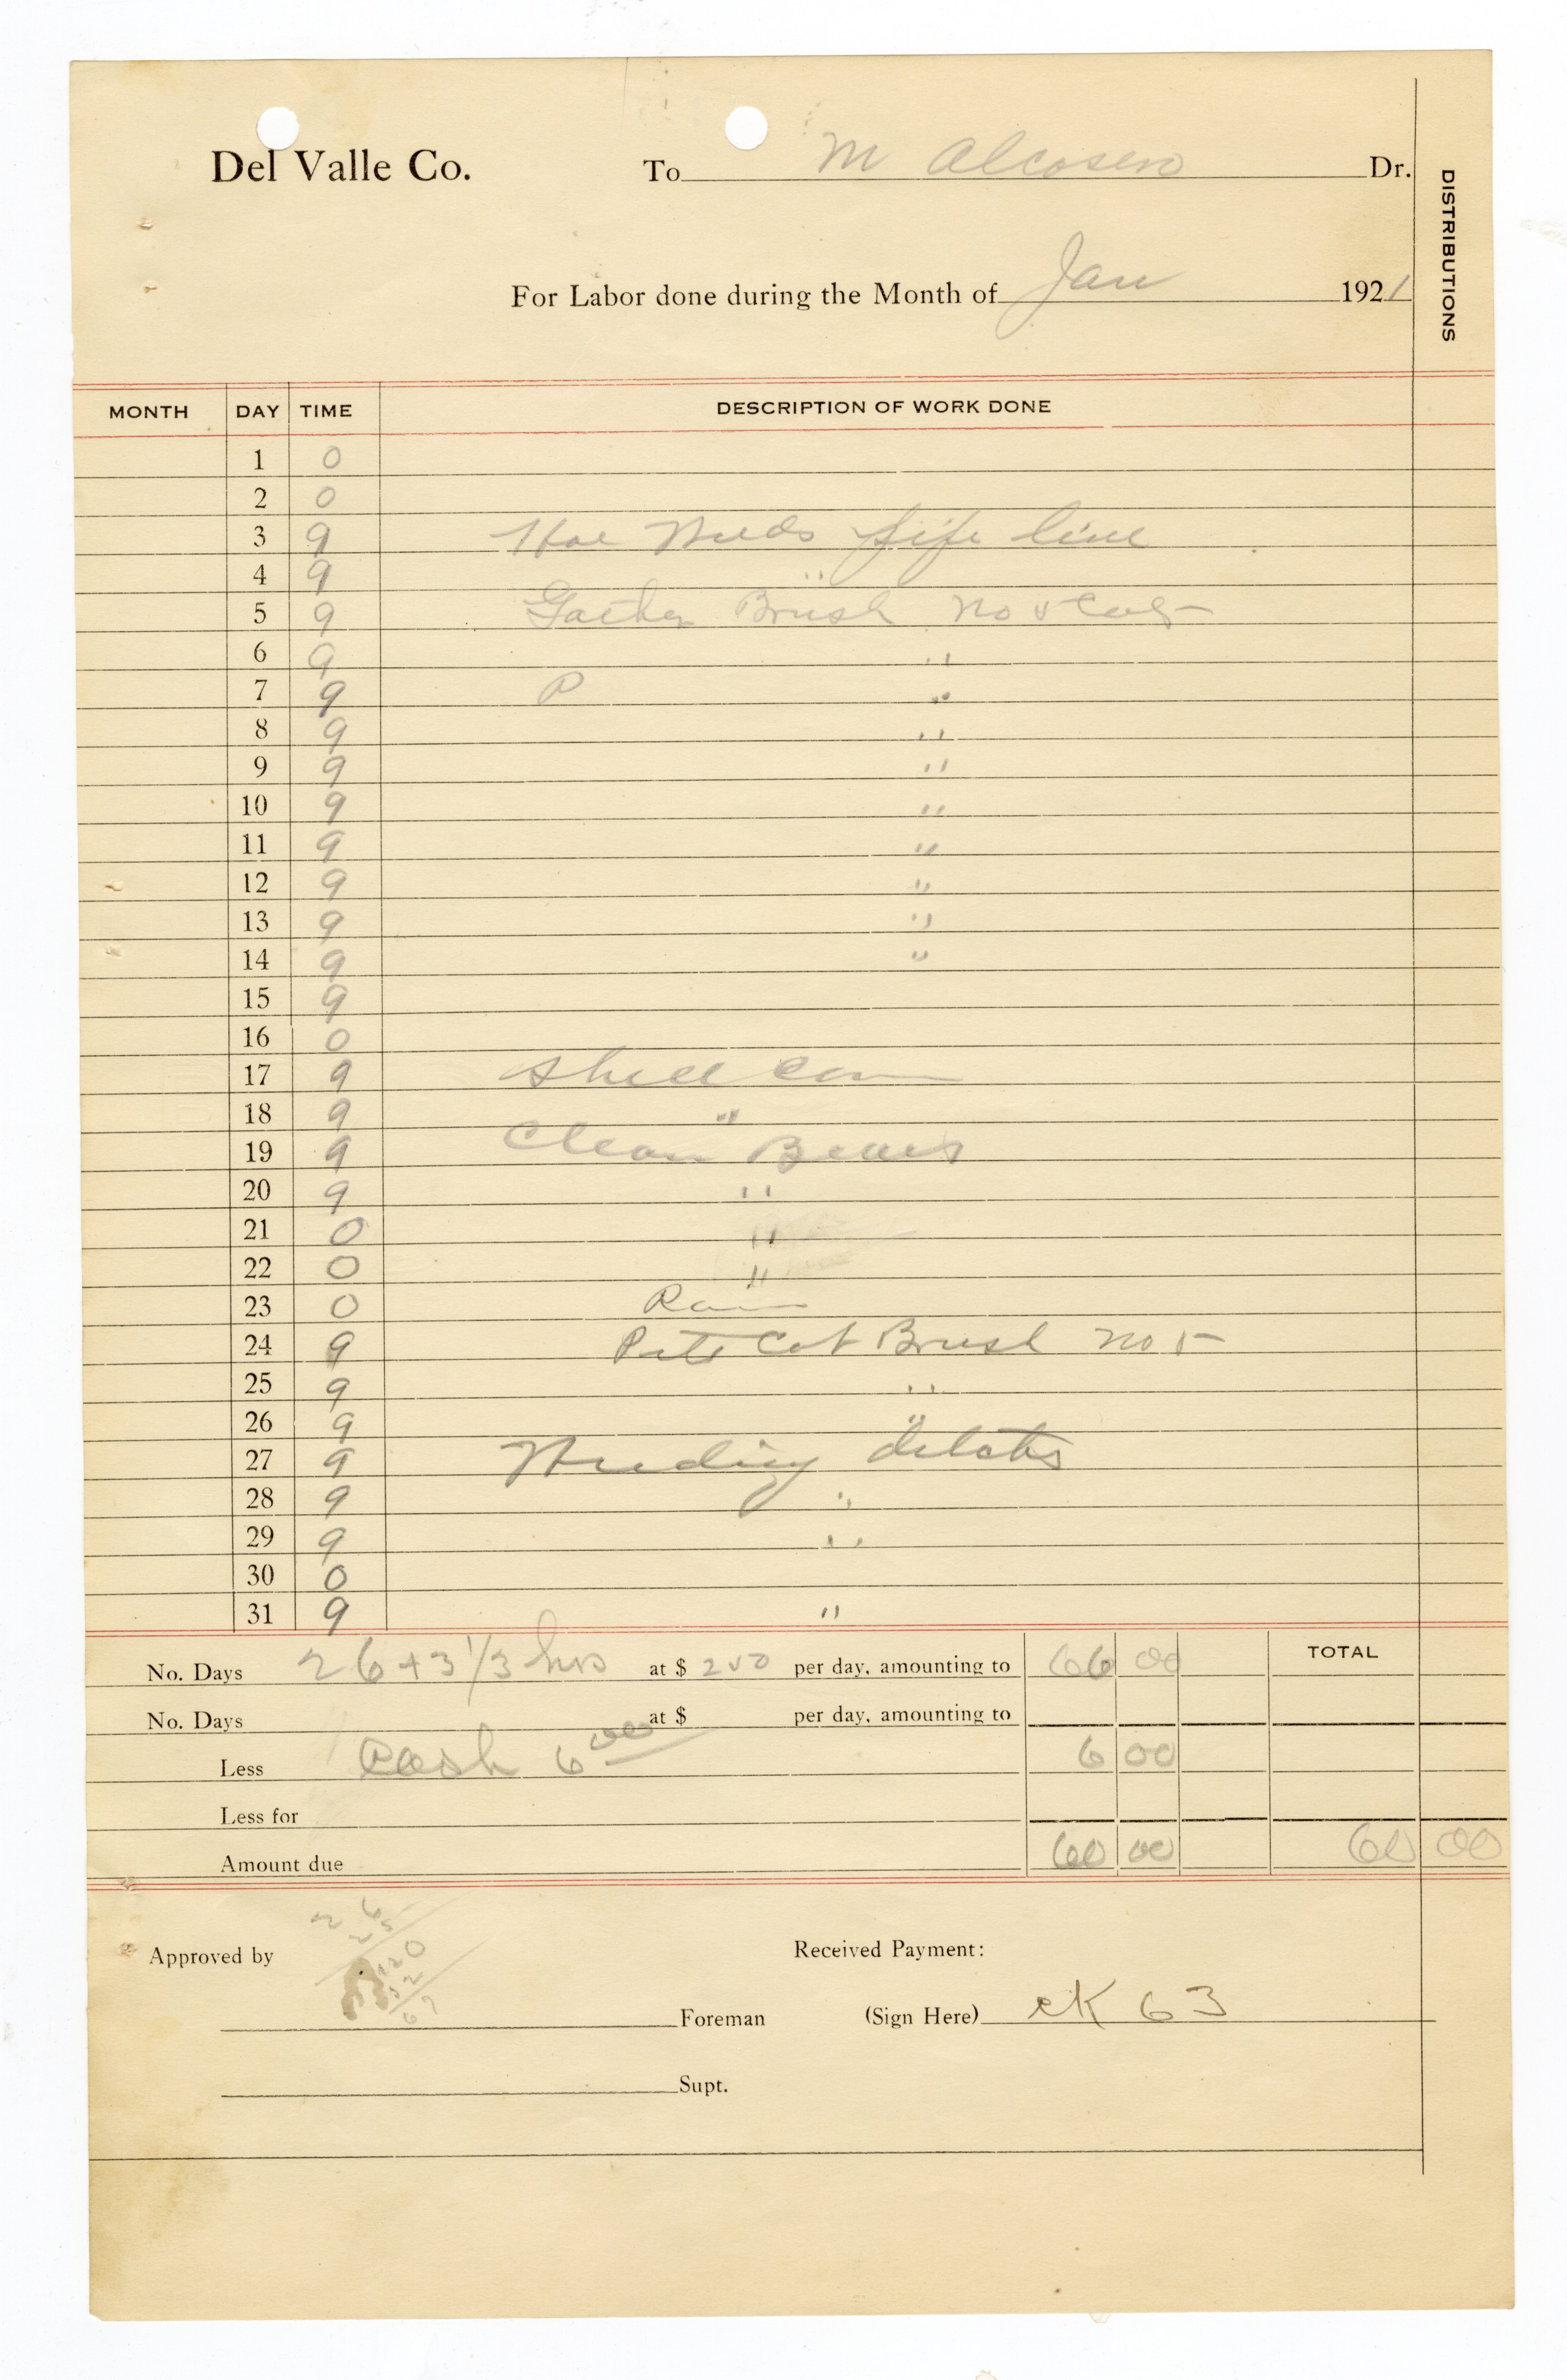 Del Valle Co. To M Alcosero Dr.
DISTRIBUTIONS
For Labor done during the Month of Jan 1921
MONTH DAY TIME DESCRIPTION OF WORK DONE
1 0
2 0
3 9 Hoe Weeds pipe line
4 9 "
5 9 Gather Brush No 5
6 9 "
7 9 "
8 9 "
9 9 "
10 9 "
11 9 "
12 9 "
13 9 "
14 9 "
15 9
16 0
17 9 Shell Corn
18 9 "
19 9 Clean Beans
20 9 "
21 0 "
22 0 "
23 0 Rain
24 9 Cut Brush No 5
25 9 "
26 9 "
27 9 Weeding
28 9 "
29 9 "
30 0
31 9 "
No. Days 26 + 3 1/3 hrs at $ 250 per day, amounting to 66 00 TOTAL
No. Days at $ per day, amounting to
Less Cash 6 00 6 00
Less for
Amount due 60 00 60 00
Approved by Received Payment:
Foreman (Sign Here) ck 63
Supt.